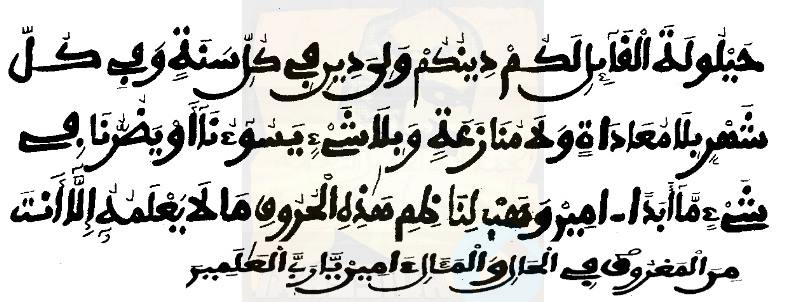 حَيْلُولَةَ الْقَآئِلِ لَكُمْ دِينُكُمْ وَلِىَ دِينِ فِى كُلِّ سَنَةٍ وَفِى كُلِّ
شَهْرٍ بِلَا مُعَادَاةٍ وَلَا مُنَازَعَةٍ وَبِلَا شَىْءٍ يَسُوٓءُنَآ أَوْ يَضُرُّنَا فِى
شَىْءٍ مَّآ أَبَدًا ـ امِينْ وَهَبْ لِنَاظِمِ هَذِهِ الْحُرُوفِ مَا لَا يَعْلَمُهُۥٓ إِلَّآ أَنتَ
مِنَ الْمَعْرُوفِ فِى الْحَالِ وَالْمَئَالِ ءَامِين يَّارَبَّ الْعَلَمِينَ